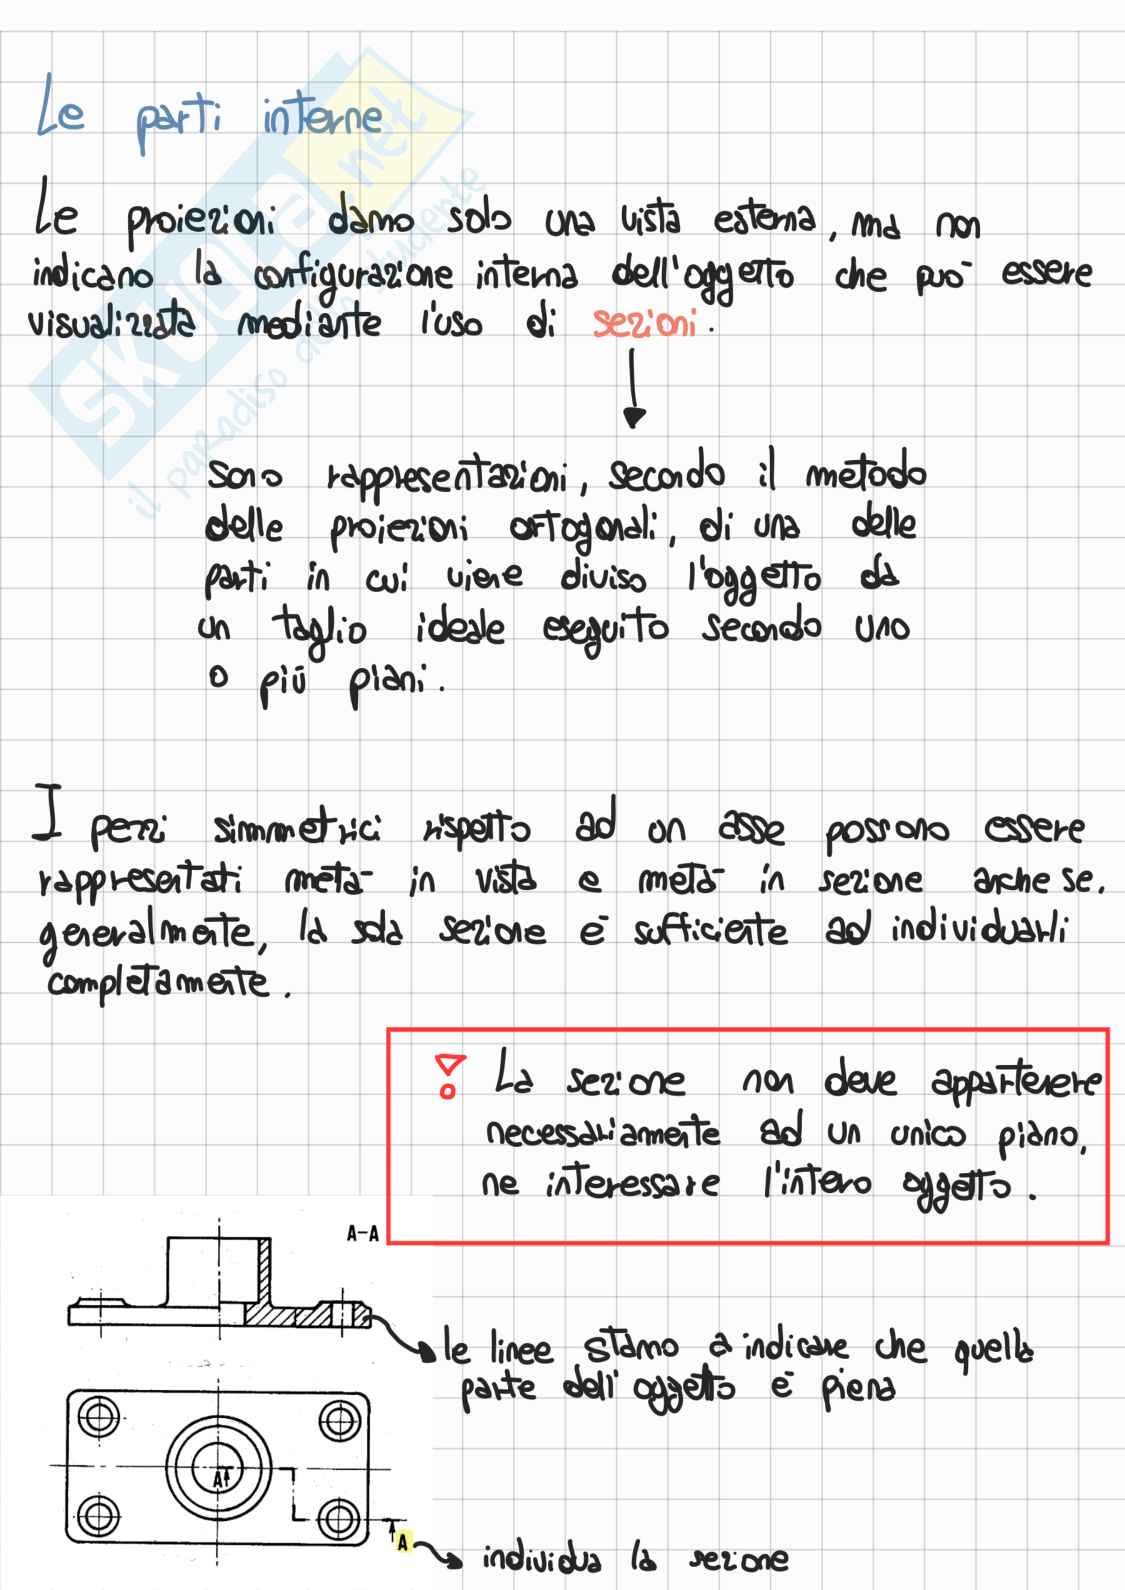 Le parti interne
Le proiezioni danno solo una vista esterna, ma non
indicano la configurazione interna dell'oggetto che può essere
visualizzata mediante l'uso di sezioni.
Sono rappresentazioni, secondo il metodo
delle proiezioni ortogonali, di una delle
parti in cui viene diviso l'oggetto da
un taglio ideale eseguito secondo uno
o più piani.
I pezzi simmetrici rispetto ad un asse possono essere
rappresentati metà in vista e metà in sezione anche se,
generalmente, la sola sezione è sufficiente ad individuarli
completamente.
La sezione non deve appartenere
necessariamente ad un unico piano,
ne interessare l'intero oggetto.
A-A
le linee stanno a indicare che quella
parte dell'oggetto è piena
A
A
individua la sezione
SKUOLA.net
il paradiso dello studente